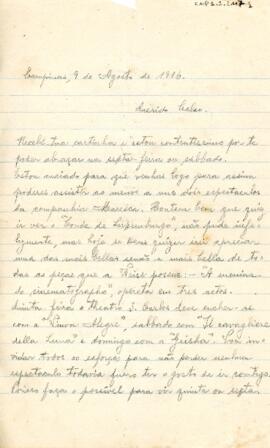 Campinas, 9 de Agosto de 1916.
Querido Celso.
Recebi tua cartinha e estou contentissimo por te
poder abraçar na sexta-feira ou sabbado.
Estou anciado para que venhas logo para assim
poderes assistir ao menos a uns dois espectaculos
da companhia Maresca. Hontem bem que quiz
ir ver o "Conde de Luxemburgo", não pude infe-
lizmente, mas hoje si Deus quizer irei apreciar
uma das mais bellas senão a mais bella de to-
das as peças que a Weiss possue: - "A menina
do cinematographo", opereta em tres actos.
Quinta feira o theatro S. Carlos deve encher-se
com a "Viuva Alegre", sabbado com "Il cavagliere
della luna" e domingo com a "Geisha". Vou en-
vidar todos os esforços para não perder nenhum
espectaculo todavia quero ter o gosto de ir comtigo
faço o possivel para vir quinta ou sexta